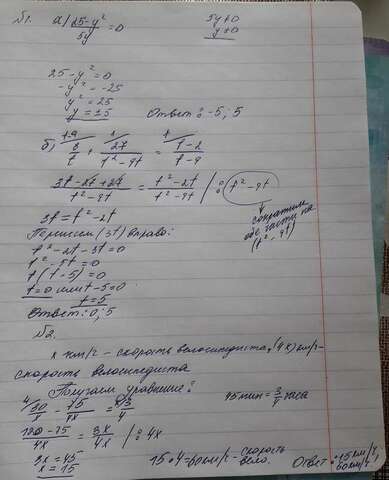 №1. а) 25-y²/5y = 0   5y≠0
y≠0
25-y²=0
-y² = -25
y² = 25
y = ±5   Ответ: -5; 5
б) 3/t + 27/t²-9t = t-2/t-9
3t-27+27/t²-9t = t²-2t/t²-9t | : (t²-9t)
сократим обе части на (t², 9t)
3t = t²-2t
Перенесём (3t) вправо:
t²-2t-3t=0
t²-5t=0
t(t-5)=0
t=0 или t-5=0
t=5
Ответ: 0; 5
№2.
x км/ч - скорость велосипедиста, (4x) км/ч-
скорость велосипедиста
Получаем уравнение:
30/x - 75/4x = 3/4   45 мин = 3/4 часа
120-75/4x = 3x/4x | : 4x
3x=45
x=15   15·4=60км/ч - скорость вело.   Ответ: 15 км/ч, 60км/ч.